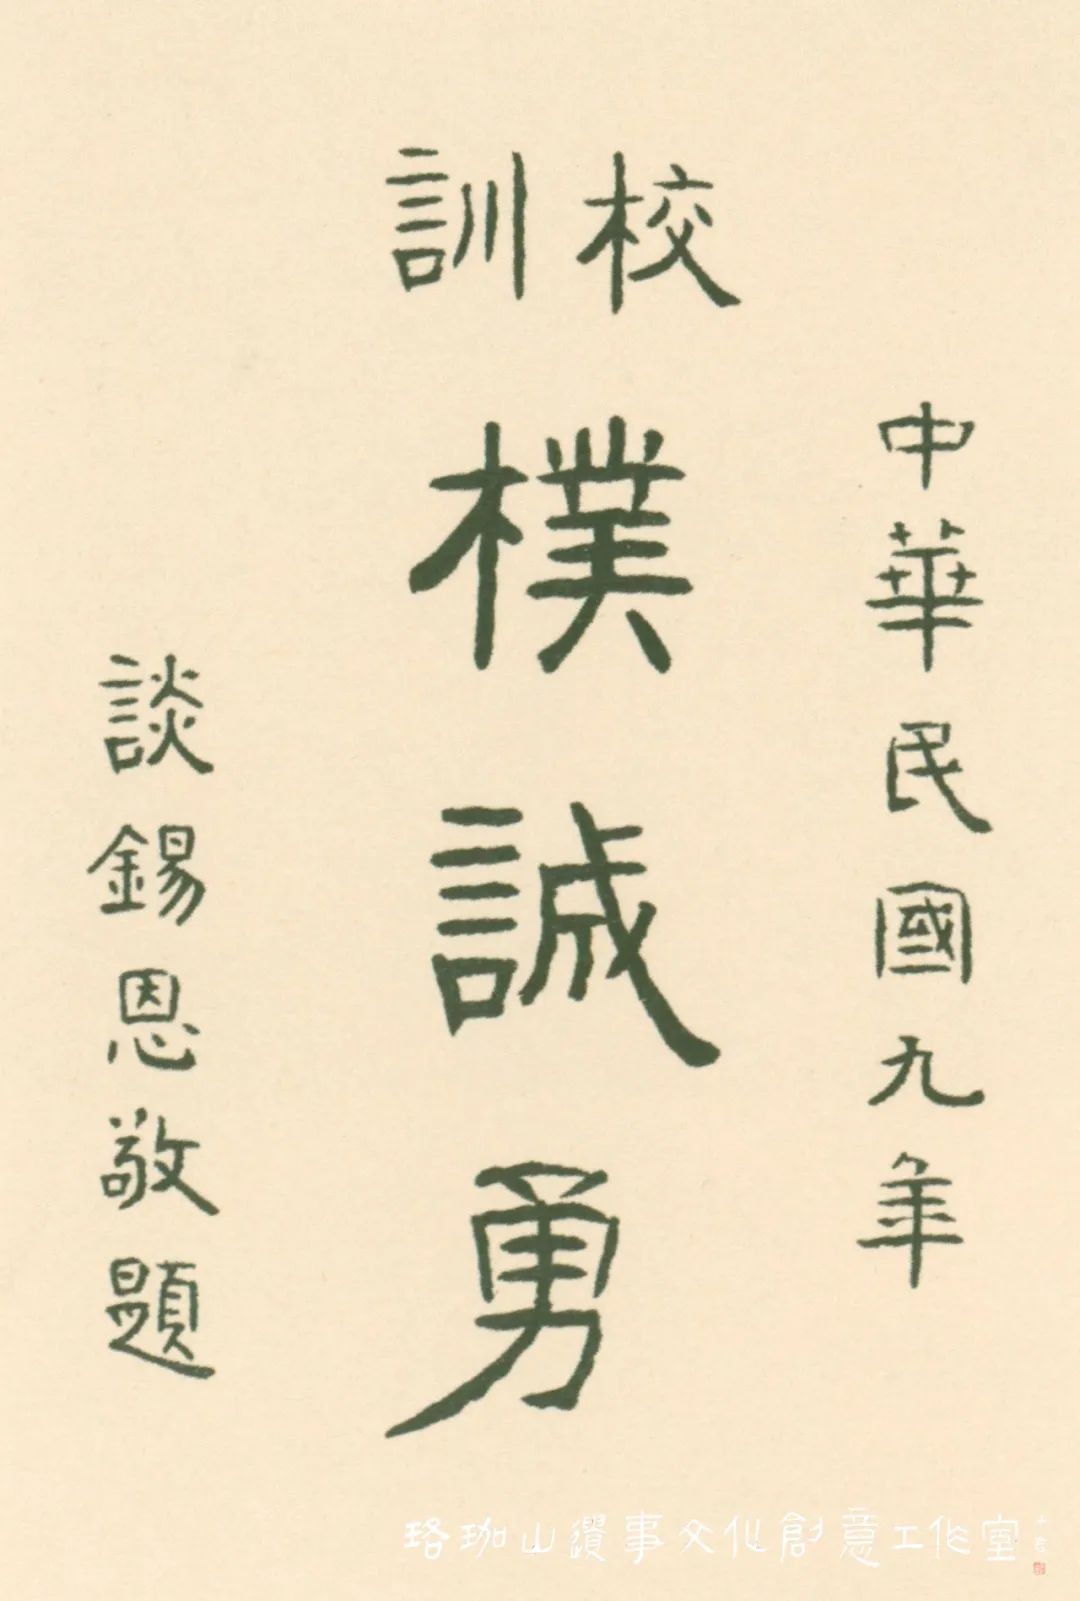 校訓
中華民國九年
樸誠勇
談錫恩敬題
珞珈山鑽事文化創意工作室